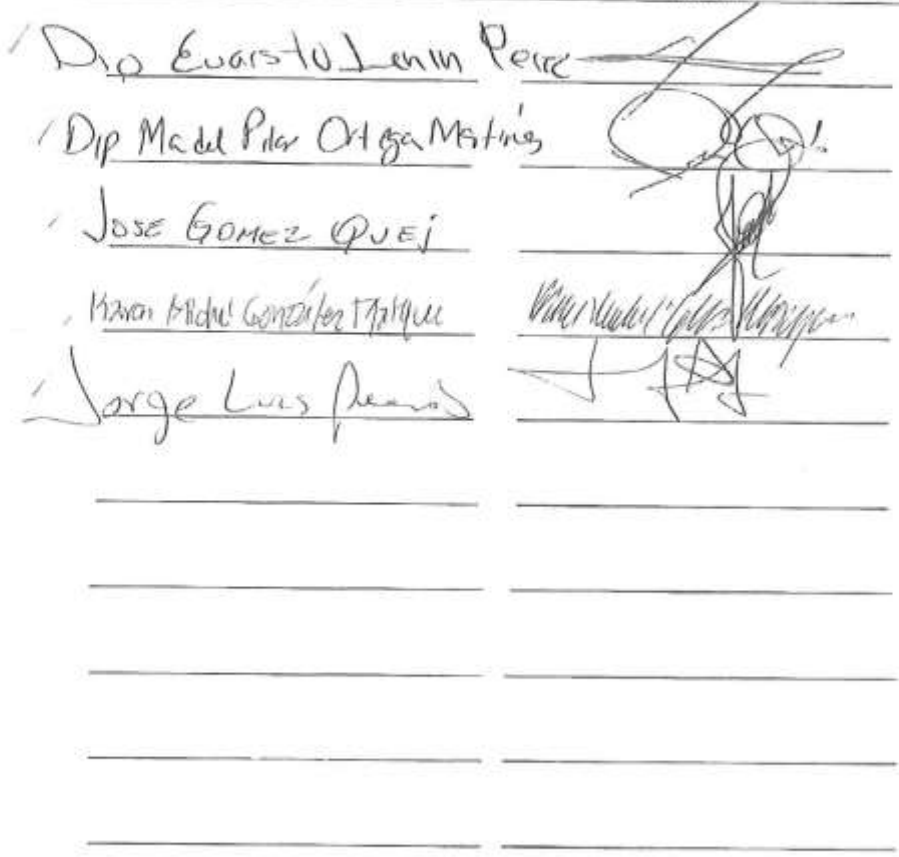 Dip Evaristo Lenin Perez
Dip Ma del Pilar Ortega Martínez
JOSE GOMEZ QUEJ
Karen Michel González Márquez
Jorge Luis